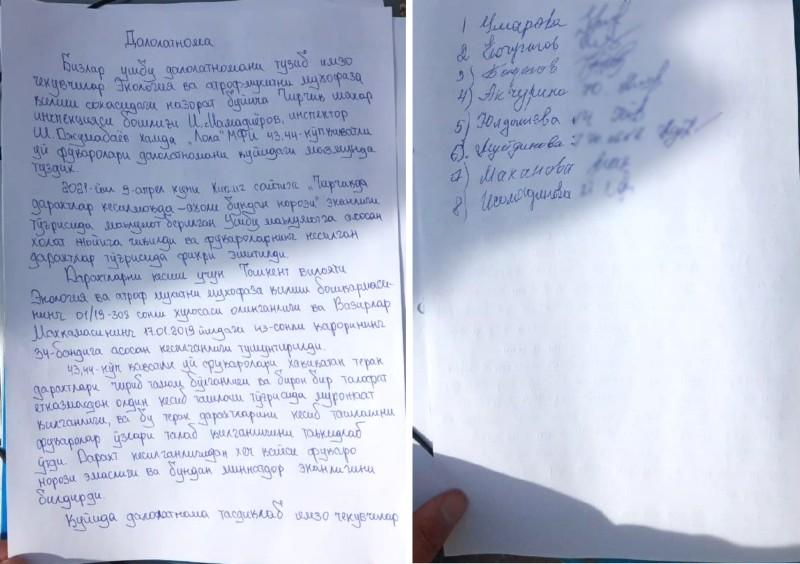 Далолатнома
Бизлар ушбу далолатномани тузиб имзо
чекувчилар Экология ва атроф-муҳитни муҳофаза
қилиш соҳасидаги назорат бўйича Чирчиқ шаҳар
инспекцияси бошлиғи И.Мамадиёров, инспектор
Ш.Джумабаёв ҳамда „Лола" МФЙ 43,44-кўп қаватли
уй фуқаролари далолатномани қуйидаги мазмунда
туздик.
2021-йил 9-апрел куни Kun.uz сайтига „Чирчиқда
дарахтлар кесилмоқда-аҳоли бундан норози" эканлиги
тўғрисида маълумот берилган. Ушбу маълумотга асосан
ҳолат жойига чиқилди ва фуқароларнинг кесилган
дарахтлар тўғрисида фикри эшитилди.
Дарахтларни кесиш учун Тошкент вилояти
Экология ва атроф муҳитни муҳофаза қилиш бошқармаси-
нинг 01/19-308 сонли хулосаси олинганлиги ва Вазирлар
Маҳкамасининг 17.01.2019 йилдаги сонли қарорининг
34-бандига асосан кесилганлиги тушунтирилди.
43,44-кўп қаватли уй фуқаролари ҳақиқатан терак
дарахтлари чириб тамом бўлганлиги ва бирон бир талафот
етказмасдан олдин кесиб ташлаш тўғрисида мурожаат
қилганлиги, ва бу терак дарахтларини кесиб ташлашни
фуқаролар ўзлари талаб қилганлигини таъкидлаб
ўтди. Дарахт кесилганлигидан ҳеч қайси фуқаро
норози эмаслиги ва бундан миннатдор эканлигини
билдирди.
Қуйида далолатнома тасдиқлаб имзо чекувчилар
1 Умарова
2
3)
4) Акчурина
5) Юлдошева
6)
7) Маханова
8)